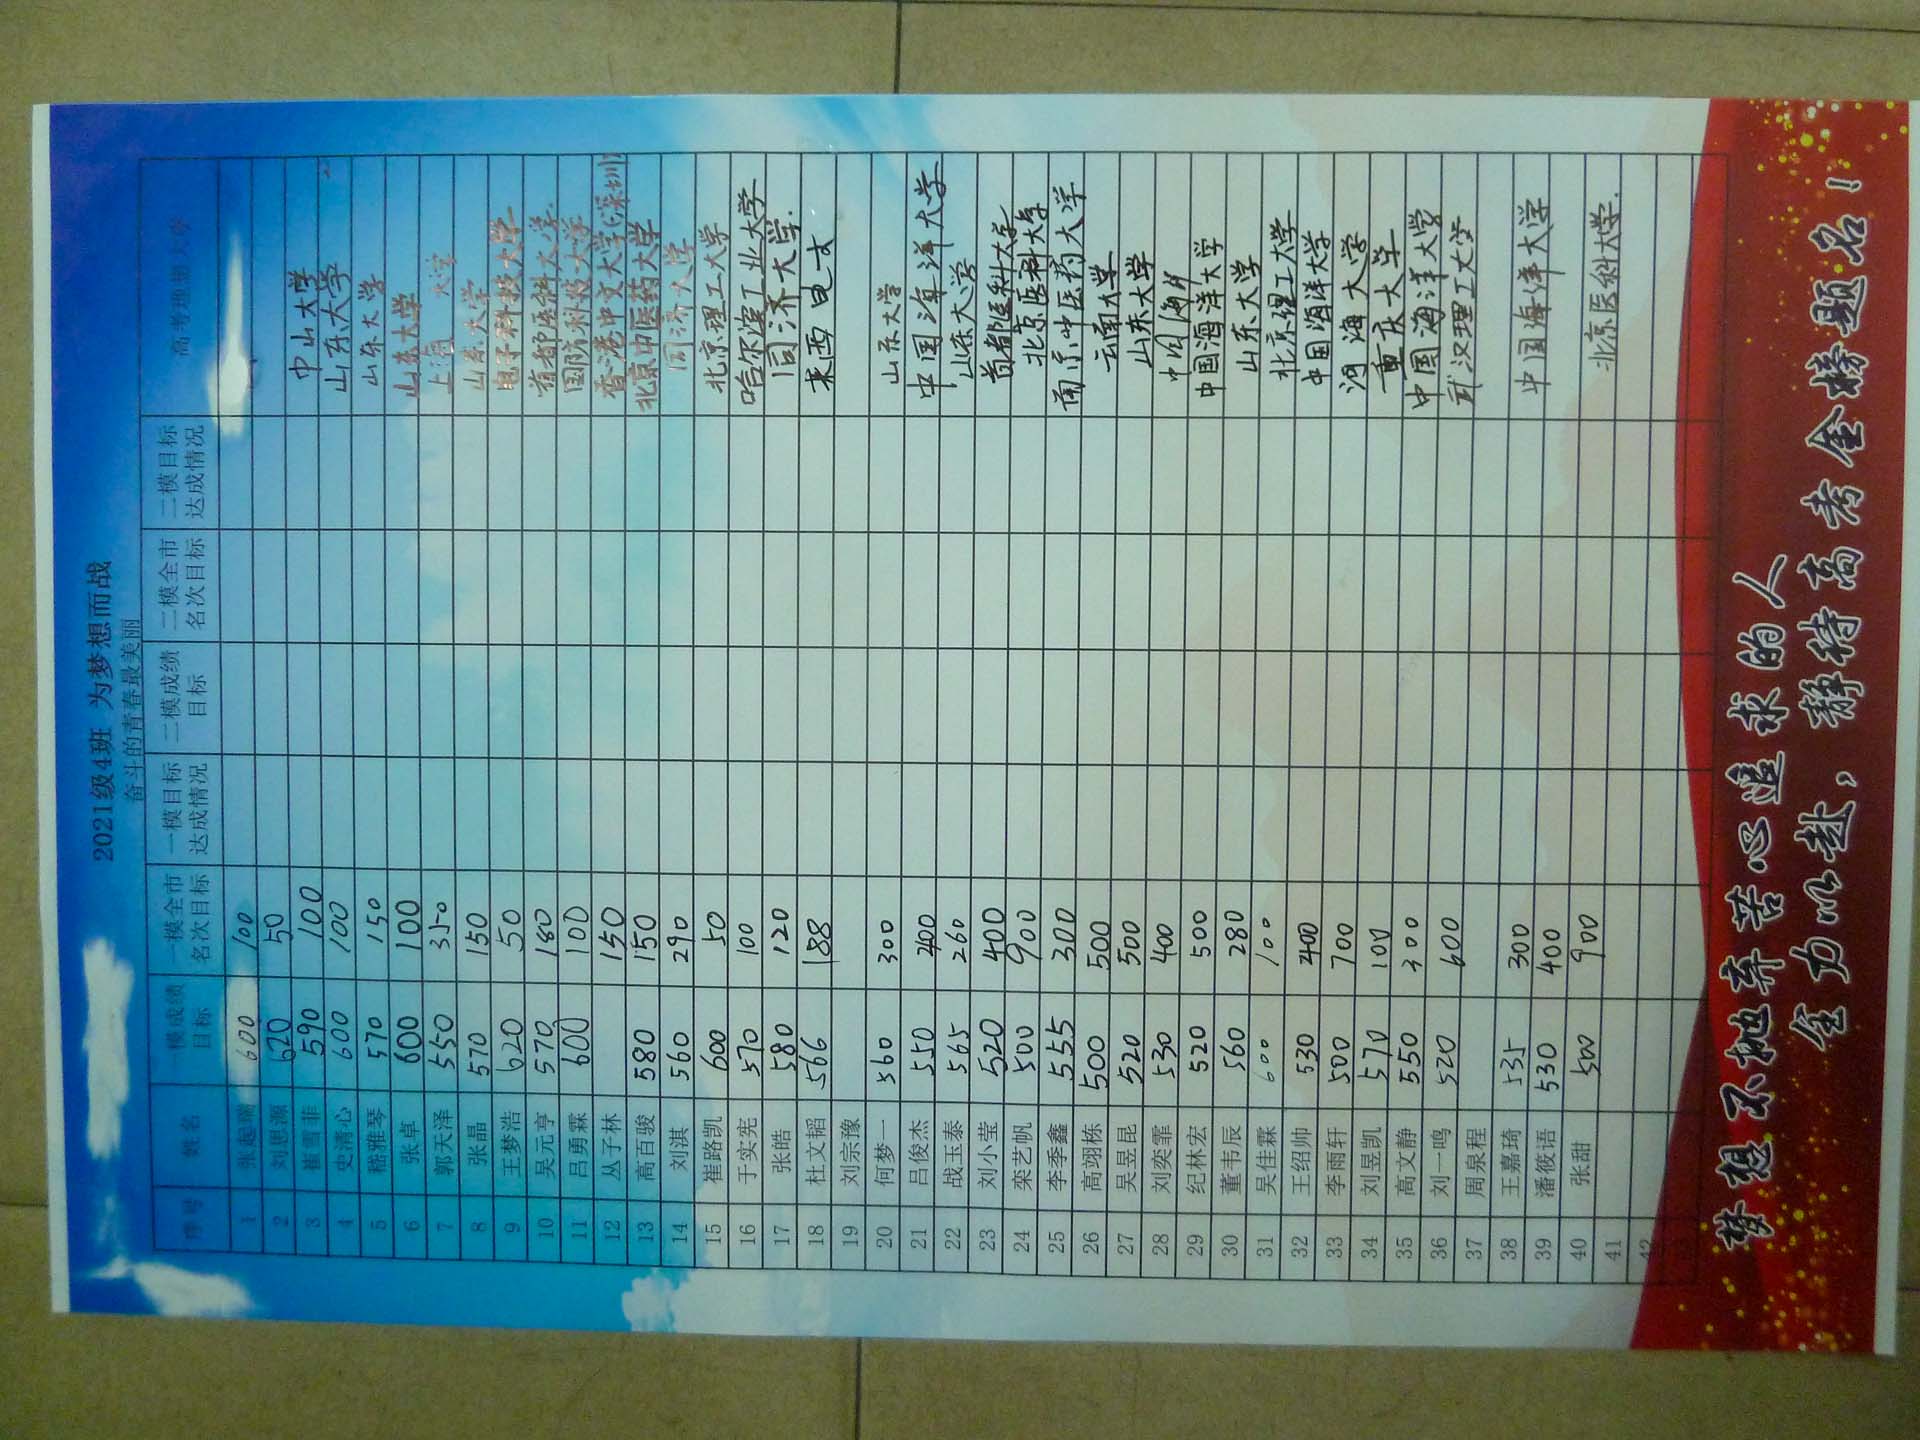 2021级4班 为梦想而战
奋斗的青春最美丽
序号 姓名 一模成绩目标 一模全市名次目标 一模目标达成情况 二模成绩目标 二模全市名次目标 二模目标达成情况 高考理想大学
1 张起瑞 600 100
2 刘思源 620 50
3 崔雪菲 590 100 中山大学
4 史清心 600 100 山东大学
5 嵇雅琴 570 150 山东大学
6 张卓 600 100 山东大学
7 郭天泽 550 350 上海大学
8 张晶 570 150 山东大学
9 王梦浩 620 50 电子科技大学
10 吴元亨 570 180 首都医科大学.
11 吕勇霖 600 100 国防科技大学
12 丛子林 150 香港中文大学(深圳)
13 高百骏 580 150 北京中医药大学
14 刘淇 560 290 同济大学
15 崔路凯 600 50 北京理工大学
16 于实宪 570 100 哈尔滨工业大学
17 张皓 580 120 同济大学.
18 杜文韬 566 188 莱西电大
19 刘宗豫
20 何梦一 560 300 山东大学
21 吕俊杰 550 400 中国海洋大学
22 战玉泰 565 260 山东大学
23 刘小莹 520 400 首都医科大学
24 栾艺帆 500 900 北京医科大学
25 李季鑫 555 300 南京中医药大学
26 高翊栋 500 500 云南大学
27 吴昱昆 520 500 山东大学
28 刘奕霏 530 400 中国海洋
29 纪林宏 520 500 中国海洋大学
30 董韦辰 560 280 山东大学
31 吴佳霖 600 100 北京理工大学
32 王绍帅 530 400 中国海洋大学
33 李雨轩 500 700 河海大学
34 刘昱凯 570 100 重庆大学
35 高文静 550 300 中国海洋大学
36 刘一鸣 520 600 武汉理工大学
37 周泉程
38 王嘉琦 535 300 中国海洋大学
39 潘筱语 530 400
40 张甜 500 900 北京医科大学.
41
42
梦想不抛弃苦心追求的人
全力以赴，静待高考金榜题名！